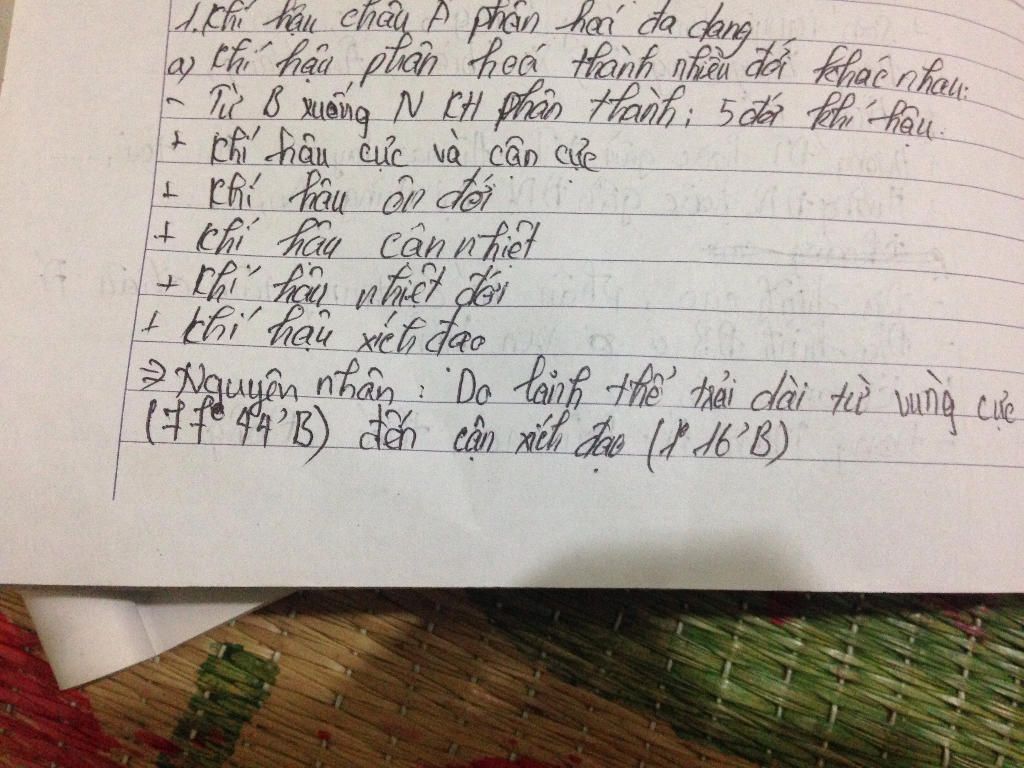 1. Khí hậu châu Á phân hoá đa dạng
a) Khí hậu phân hoá thành nhiều đới khác nhau:
- Từ B xuống N KH phân thành: 5 đới khí hậu.
+ Khí hậu cực và cận cực
+ Khí hậu ôn đới
+ Khí hậu cận nhiệt
+ Khí hậu nhiệt đới
+ Khí hậu xích đạo
=> Nguyên nhân: Do lảnh thổ trải dài từ vùng cực
(77° 44' B) đến cận xích đạo (1° 16' B)